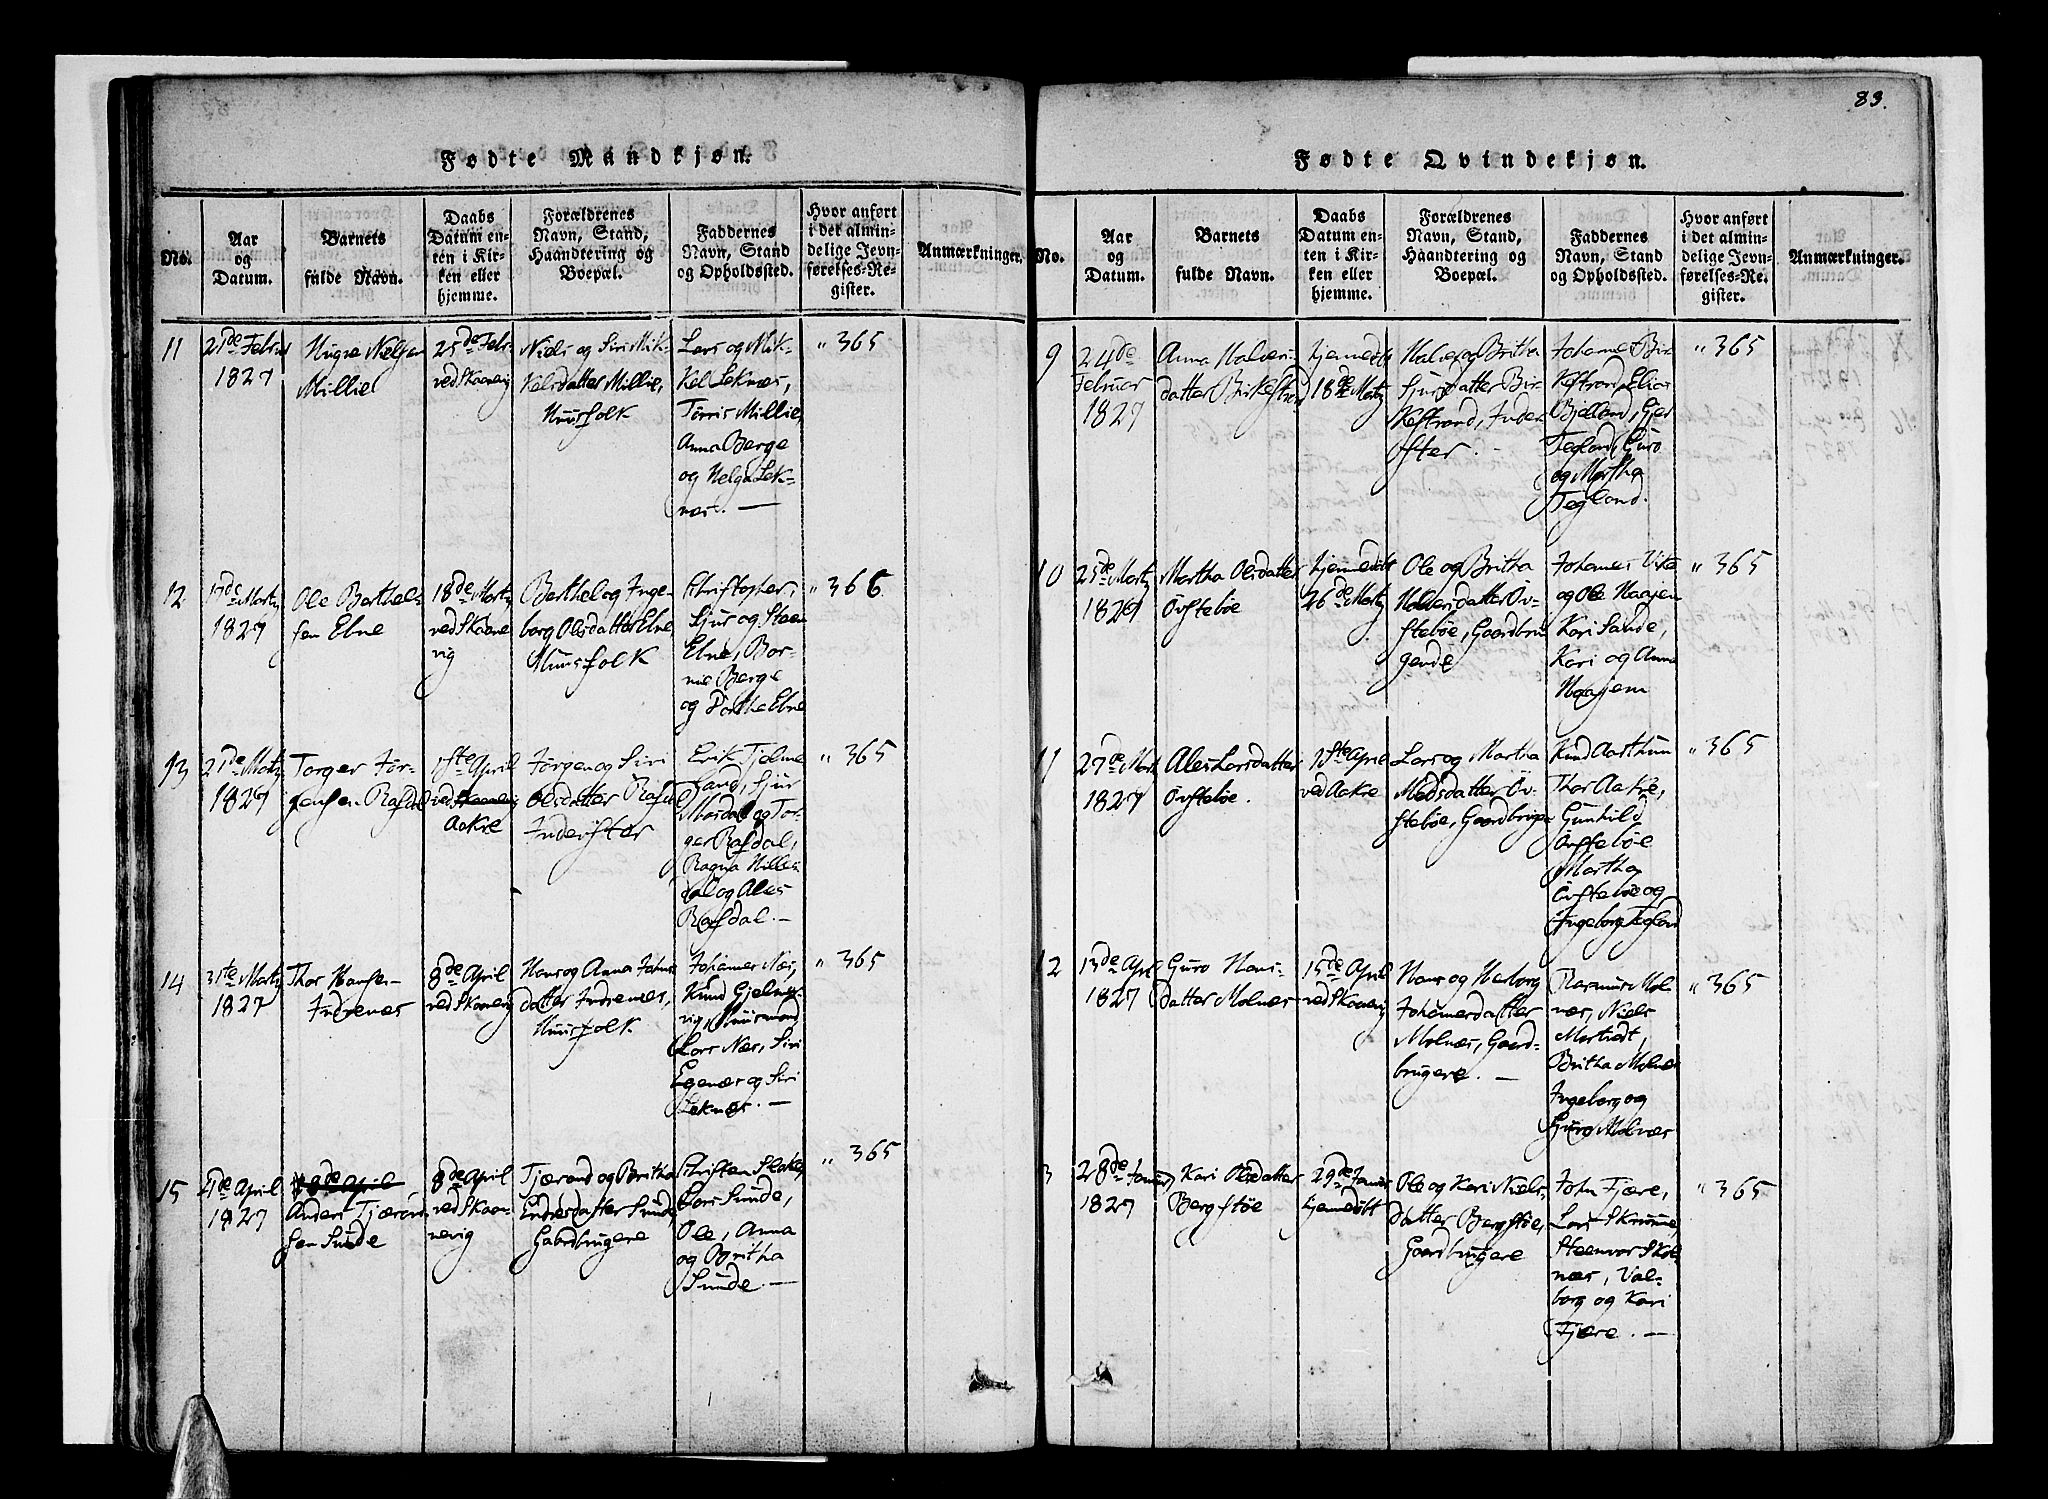 83.
Fødte Mandkjøn.
No.
Aar
og
Datum.
Barnets
fulde Navn.
Daabs
Datum en-
ten i Kir-
ken eller
hjemme.
Forældrenes
Navn, Stand,
Haandtering og
Boepæl.
Faddernes
Navn, Stand
og Opholdssted.
Hvor anført
i det almin-
delige Jevn-
førelses-Re-
gister.
Anmærkninger.
11
21de Febru
1827
Nielsen
Millie
25de Febr.
ved Skaanevig
Niels og Siri Mik-
kelsdatter Millie,
Huusfolk
Lars og Mik-
kel Leknæs,
Tørris Millie,
Anna Berge
og Helga Lek-
næs. —
" 365
12
17de Martz
1827
Ole Barthel-
sen Ebne
18de Martz
ved Skaane
vig
Barthel og Inge-
borg Olsdatter Ebne
Huusfolk
Christopher,
Sjur og Steen
Ebne, Bor-
Berge
og Dorthe Ebne
" 366
13
21de Martz
1827
Torger Jør-
gensen Rafdal
1ste April
ved Skaanevig
Aakre
Jørgen og Siri
Olsdatter Rafdal
Inderster
Erik Fjelme
Sjur
Mosdal og Tor-
ger Rafdal,
Ragna Hilles
dal og Ales
Rafdal. —
" 365
14
31te Martz
1827
Thor Hansen
Indrenæs
8de April
ved Skaanevig
Hans og Anna Johns
datter Indrenæs,
Huusfolk
Johannes Næs,
Knud Gjelme-
vig, Huusmand
Lars Næs, Siri
Egenæs og Siri
Leknæs. —
" 365
15
4de April
1827
8de April
Anders Tjæran
sen Sunde
8de April
ved Skaa-
nevig
Tjærand og Britha
Endresdatter Sunde
Gaardbrugere
Christen
Lars Sunde,
Ole, Anna
og Britha
Sunde. —
" 365
Fødte Qvindekjøn.
No.
Aar
og
Datum.
Barnets
fulde Navn.
Daabs
Datum en-
ten i Kir-
ken eller
hjemme.
Forældrenes
Navn, Stand,
Haandtering og
Boepæl.
Faddernes
Navn, Stand
og Opholdssted.
Hvor anført
i det almin-
delige Jevn-
førelses-Re-
gister.
Anmærkninger.
9
24de
Februar
1827
Anna Halvers-
datter Birkestrand
hjemedøbt
18de Martz
Halver og Britha
Sjursdatter Bir-
kestrand, Inder
ster. —
Johannes Bir
kestrand, Elias
Bjelland, Gjer
Tegland, Guro
og Martha
Tegland.
" 365
10
25de Martz
1827
Martha Olsdatter
Øvstebøe
hjemedøbt
26de Martz
Ole og Britha
Haldorsdatter Øv-
stebøe, Gaardbru
gende
Johannes Vika
og Ole Haajem
Kari Sande,
Kari og Anna
Haajem
" 365
11
27de Mart
1827
Ales Larsdatter
Øvstebøe.
1ste April
ved Aakre
Lars og Martha
Madsdatter Øv-
stebøe, Gaardbruge
Knud Aarthun
Thor Aakre,
Gunhild
Øvstebøe
Martha
Øvstebøe og
Ingeborg Tegland
" 365
12
13de April
1827
Guro Hans-
datter Molnæs
15de April
ved Skaanevig
Hans og Herborg
Johannesdatter
Molnæs, Gaard-
brugere. —
Rasmus Mol
næs, Niels
Britha Molnæs
Ingeborg og
Guro Molnæs
" 365
3
28de Januar
1827
Kari Olsdatter
Bergstøe
29de Januar
hjemedøbt
Ole og Kari Niels-
datter Bergstøe,
Gaardbrugere
John Fjære,
Lars Skromme,
Steenvor Skol
næs, Val-
borg og Kari
Fjære. —
" 365